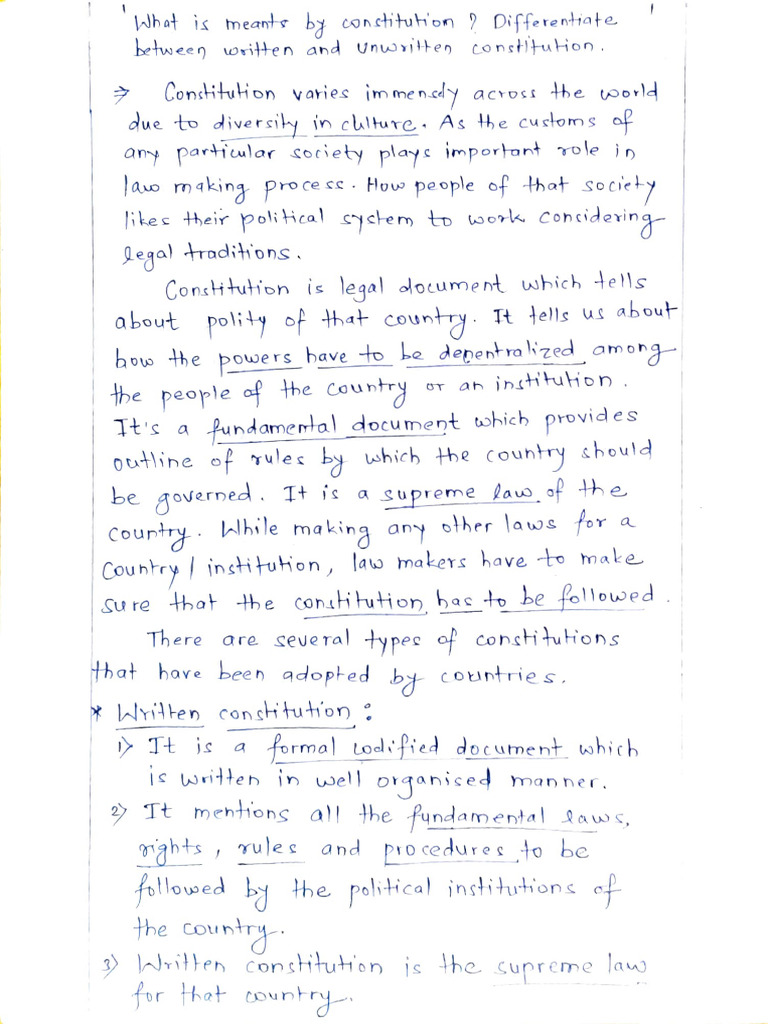 What is meants by constitution ? Differentiate
between written and unwritten constitution.
⇒ Constitution varies immensely across the world
due to diversity in culture. As the customs of
any particular society plays important role in
law making process. How people of that society
likes their political system to work considering
legal traditions.
Constitution is legal document which tells
about polity of that country. It tells us about
how the powers have to be decentralized among
the people of the country or an institution.
It's a fundamental document which provides
outline of rules by which the country should
be governed. It is a supreme law of the
country. While making any other laws for a
country / institution, law makers have to make
sure that the constitution has to be followed.
There are several types of constitutions
that have been adopted by countries.
* Written constitution :
1) It is a formal codified document which
is written in well organised manner.
2) It mentions all the fundamental laws,
rights, rules and procedures to be
followed by the political institutions of
the country.
3) Written constitution is the supreme law
for that country.